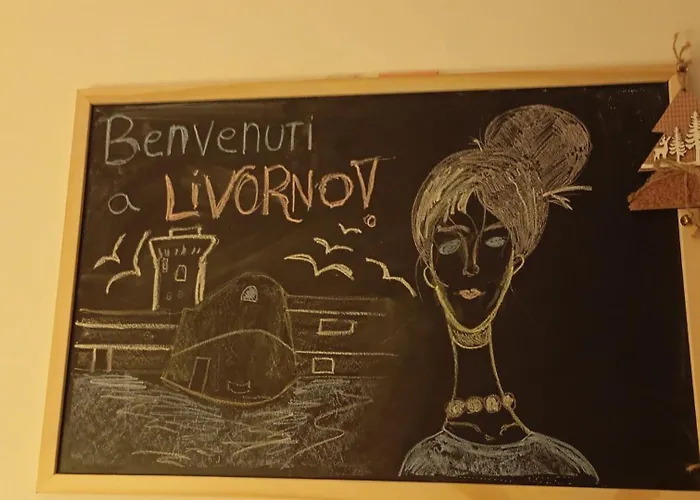 Benvenuti
a LIVORNO!